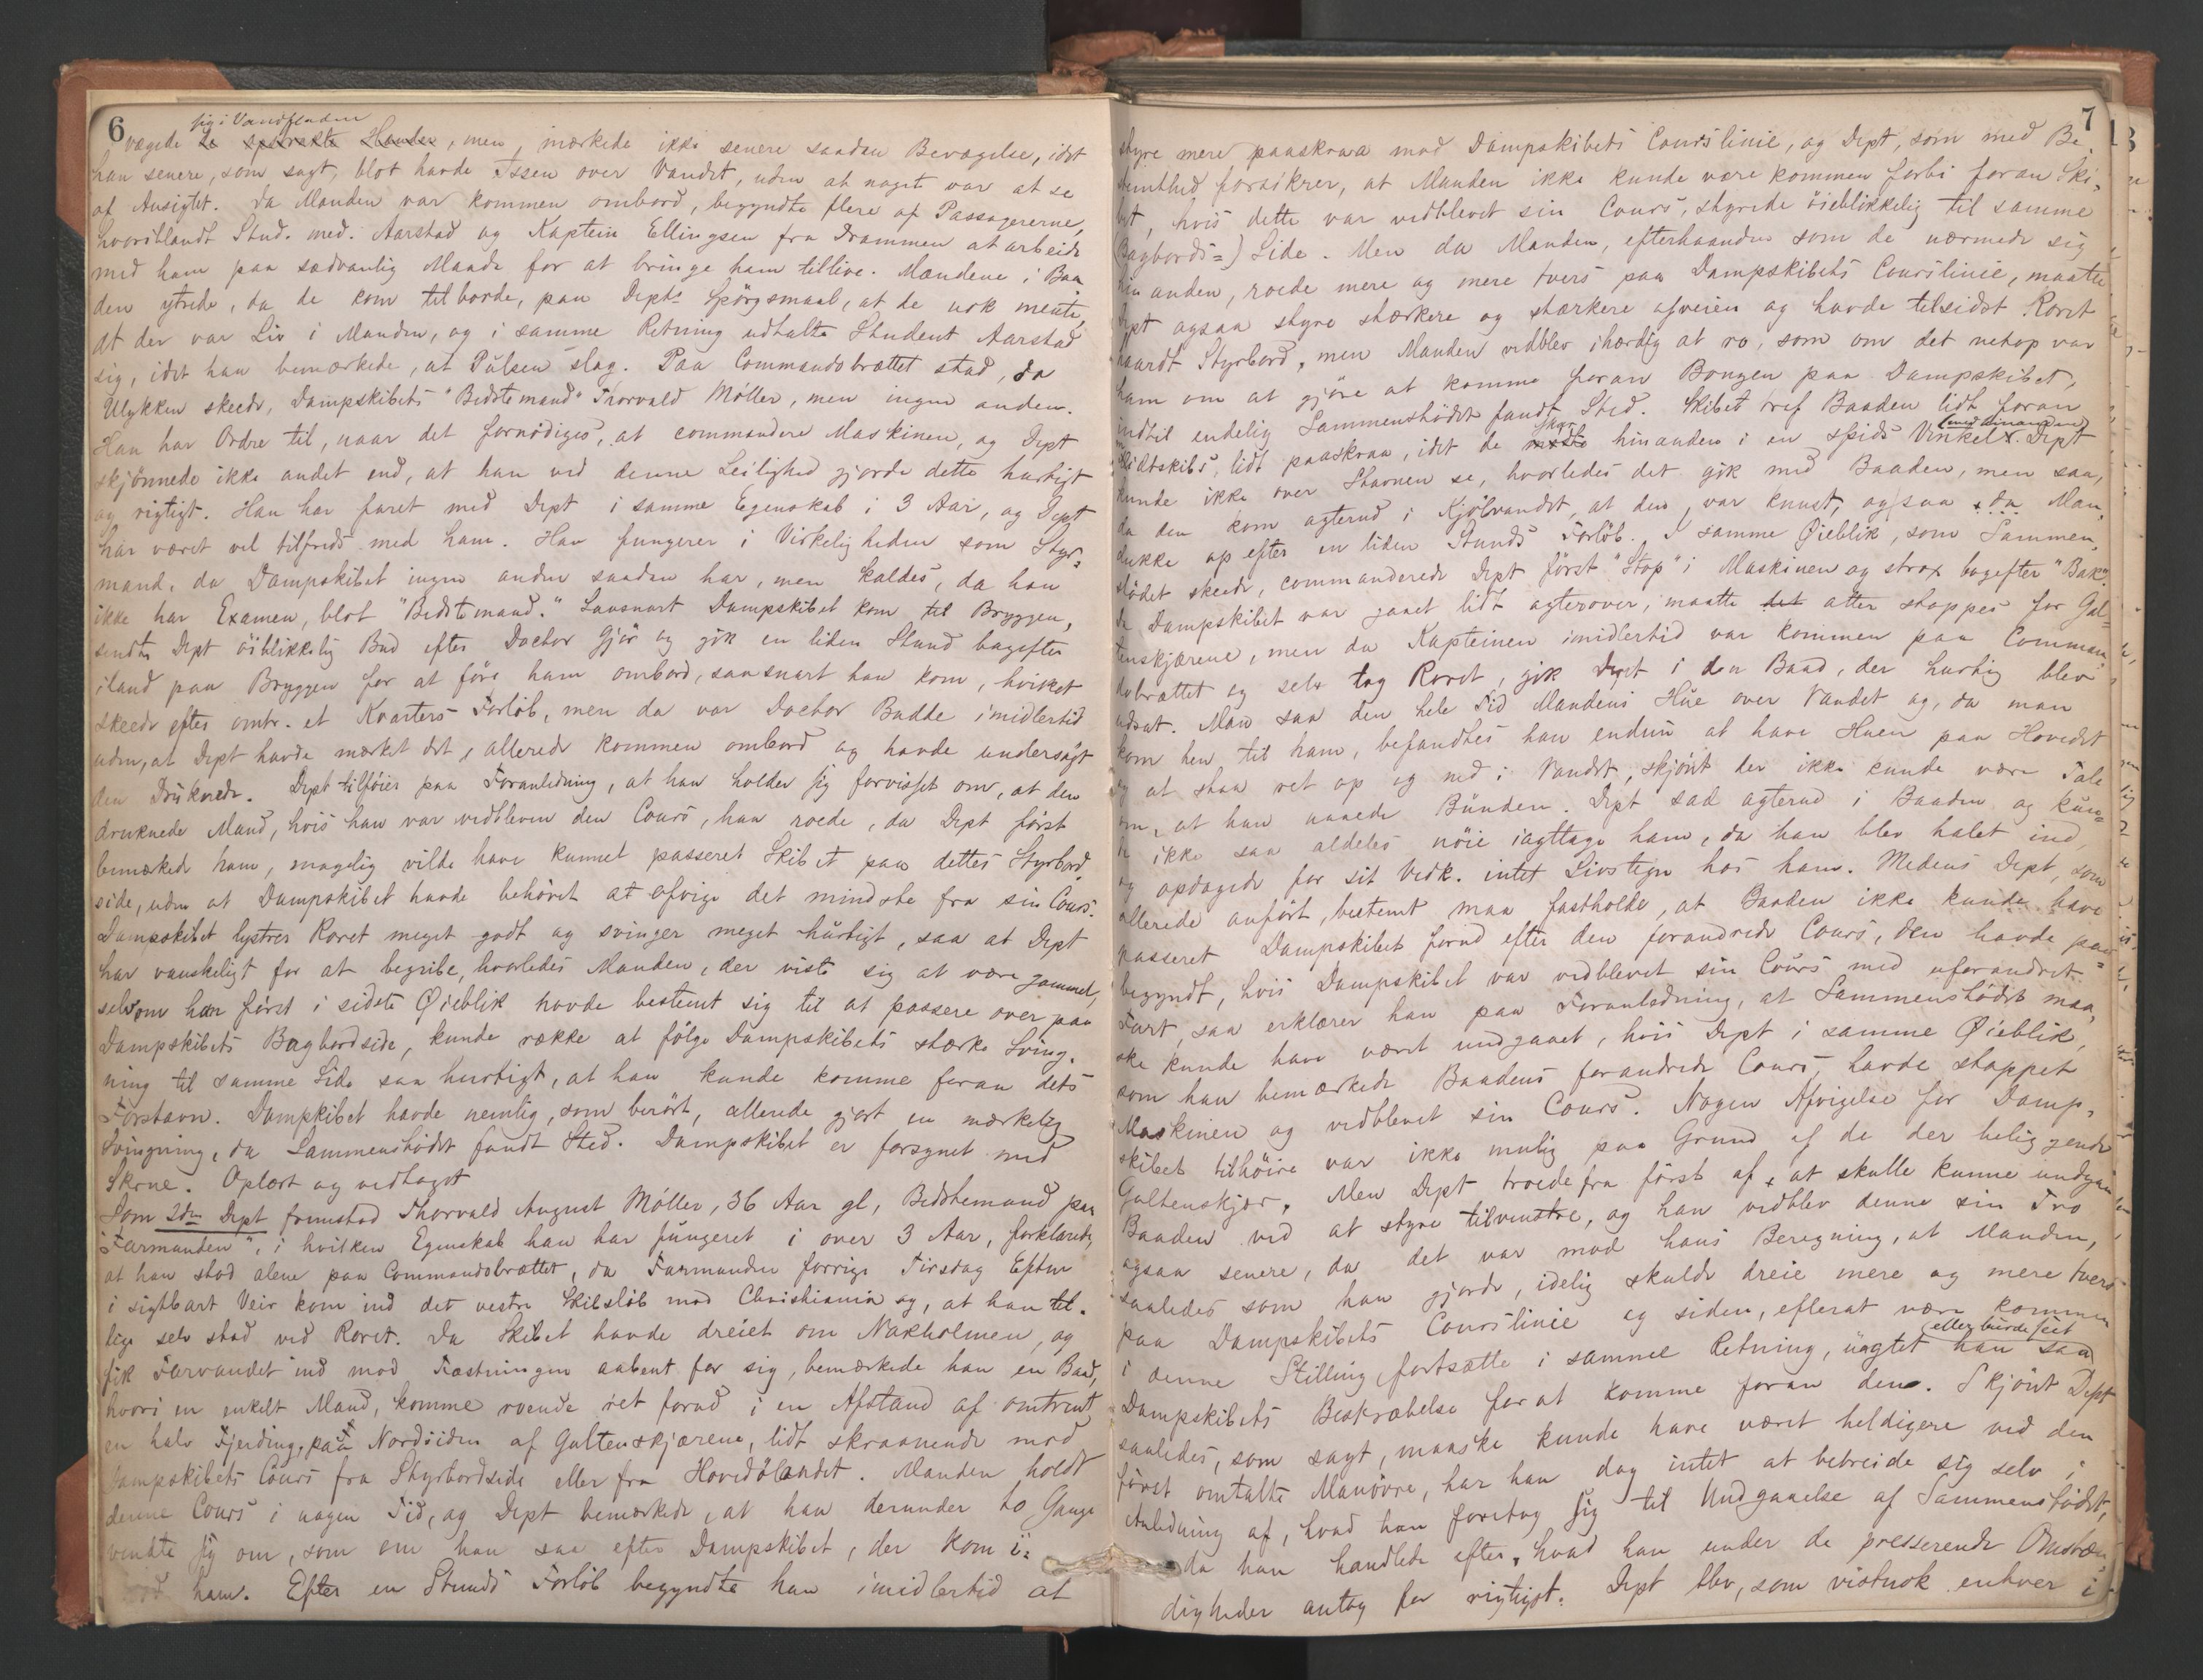 6
sig i Vandfladen
vægede de opstrakte Hænder, men, mærkede ikke senere saadan Bevægelse, idet
han senere, som sagt, blot havde Issen over Vandet, uden at noget var at se
af Ansigtet. Da Manden var kommen ombord, begyndte flere af Passagererne,
hvoriblandt Stud. med. Aarstad og Kaptein Ellingsen fra Drammen at arbeide
med ham paa sædvanlig Maade for at bringe ham tillive. Mændene i Baa
den ytrede, da de kom tilborde, paa Depts Spörgsmaal, at de nok mente,
at der var Liv i Manden, og i samme Retning udtalte Student Aarstad
sig, idet han bemærkede, at Pulsen slog. Paa Commandobrættet stod, da
Ulykken skeede, Dampskibets "Bedstemand" Thorvald Möller, men ingen anden.
Han har Ordre til, naar det fornödiges, at commandere Maskinen, og Dept
skjönnede ikke andet end, at han ved denne Leilighed gjorde dette hurtigt
og rigtigt. Han har faret med Dept i samme Egenskab i 3 Aar, og Dept
har været vel tilfreds med ham. Han fungerer i Virkeligheden som Styr=
mand, da Dampskibet ingen anden saadan har, men kaldes, da han
ikke har Examen, blot "Bedstemand." Saasnart Dampskibet kom til Bryggen,
sendte Dept öiblikkelig Bud efter Doctor Gjör og gik en liden Stund bagefter
iland paa Bryggen for at före ham ombord, saasnart han kom, hvilket
skeede efter omtr. et Kvarters Forlöb, men da var Doctor Budde imidlertid
uden, at Dept havde mærket det, allerede kommen ombord og havde undersögt
den Druknede. Dept tilföier paa Foranledning, at han holder sig forvisset om, at den
druknede Mand, hvis han var vedbleven den Cours, han roede, da Dept först
bemærkede ham, magelig vilde have kunnet passeret Skibet paa dettes Styrbord
side, uden at Dampskibet havde behövet at afvige det mindste fra sin Cours.
Dampskibet lystrer Roret meget godt og svinger meget hurtigt, saa at Dept
har vanskeligt for at begribe, hvorledes Manden, der viste sig at være gammel,
selvom han först i sidste Øieblik havde bestemt sig til at passere over paa
Dampskibets Bagbordside, kunde række at fölge Dampskibets stærke Sving=
ning til samme Side saa hurtigt, at han kunde komme foran dets
Forstavn. Dampskibet havde nemlig, som berört, allerede gjort en mærkelig
Svingning, da Sammenstödet fandt Sted. Dampskibet er forsynet med
Skrue. Oplæst og vedtaget
Som 2den Dept fremstod Thorvald August Möller, 36 Aar gl, Bedstemand paa
"Farmanden", i hvilken Egenskab han har fungeret i over 3 Aar, forklarede,
at han stod alene paa Commandobrættet, da Farmanden forrige Tirsdag Eftm
i sigtbart Veir kom ind det vestre Skibslöb mod Christiania og, at han til=
lige selv stod ved Roret. Da Skibet havde dreiet om Nakholmen, og
fik Farvandet ind mod Fæstningen aabent for sig, bemærkede han en Baad,
hvori en enkelt Mand, komme roende ret forud i en Afstand af omtrent
en halv Fjerding, paa Nordsiden af Galtenskjærene, lidt skraanende mod
Dampskibets Cours fra Styrbordside eller fra Hovedölandet. Manden holdt
denne Cours i nogen Tid, og Dept bemærkede, at han derunder to Gange
vendte sig om, som om han saa efter Dampskibet, der kom i=
mod ham. Efter en Stunds Forlöb begyndte han imidlertid at
7
styre mere paaskraa mod Dampskibets Courslinie, og Dept, som med Be=
stemthed forsikrer, at Manden ikke kunde være kommen forbi foran Ski=
bet, hvis dette var vedblevet sin Cours, styrede öieblikkelig til samme
(Bagbords=) Side. Men da Manden, efterhaanden som de nærmede sig
hin anden, roede mere og mere tvers paa Dampskibets Courslinie, maatte
Dept ogsaa styre stærkere og stærkere afveien og havde tilsidst Roret
haardt Styrbord, men Manden vedblev ihærdig at ro, som om det netop var
ham om at gjöre at komme foran Bougen paa Dampskibet,
indtil endelig Sammenstödet fandt Sted. Skibet traf Baaden lidt foran
midtskibs, lidt paaskraa, idet de mödte hinanden i en spids Vinkel. Dept
kunde ikke over Stavnen se, hvorledes det gik med Baaden, men saa,
da den kom agterud i Kjölvandet, at den var knust, ogsaa da Man=
dukke op efter en liden Stunds Forlöb. I samme Øieblik, som Sammen=
stödet skeede, commanderede Dept först "Stop" i Maskinen og strax bagefter "Bak".
Da Dampskibet var gaaet lidt agterover, maatte det atter stoppes for Gal=
tenskjærene, men da Kapteinen imidlertid var kommen paa Comman=
dobrættet og selv tog Roret, gik Dept i den Baad, der hurtig blev
udsat. Man saa den hele Tid Mandens Hue over Vandet og, da man
kom hen til ham, befandtes han endnu at have Huen paa Hovedet
og at staa ret op og ned i Vandet, skjönt der ikke kunde være Tale
om, at han naaede Bunden. Dept sad agterud i Baaden og kun=
de ikke saa aldeles nöie iagttage ham, da han blev halet ind,
og opdagede for sit Vedk. intet Livstegn hos ham. Medens Dept, som
allerede anfört, bestemt maa fastholde, at Baaden ikke kunde have
passeret Dampskibet forud efter den forandrede Cours, den havde paa=
begyndt, hvis Dampskibet var vedblevet sin Cours med uforandret
Fart, saa erklærer han paa Foranledning, at Sammenstödet maa=
ske kunde have været undgaaet, hvis Dept i samme Øieblik,
som han bemærkede Baadens forandrede Cours, havde stoppet
Maskinen og vedblevet sin Cours. Nogen Afvigelse for Damp=
skibet tilhöire var ikke mulig paa Grund af de der beliggende
Galtenskjær. Men Dept troede fra först af, at skulle kunne undgaa
Baaden ved at styre tilvenstre, og han vedblev denne sin Tro
ogsaa senere, da det var mod hans Beregning, at Manden,
saaledes som han gjorde, idelig skulde dreie mere og mere tvers
paa Dampskibets Courslinie og siden, efterat være kommen
i denne Stilling fortsætte i samme Retning, uagtet han saa
eller burde seet
Dampskibets Bestræbelse for at komme foran den. Skjönt Dept
saaledes, som sagt, maaske kunde have været heldigere ved den
först omtalte Manövre, har han dog intet at bebreide sig selv i
Anledning af, hvad han foretog sig til Undgaaelse af Sammenstödet,
da han handlede efter, hvad han under de presserende Omstæn=
digheder antog for rigtigst. Dept blev, som vistnok enhver i